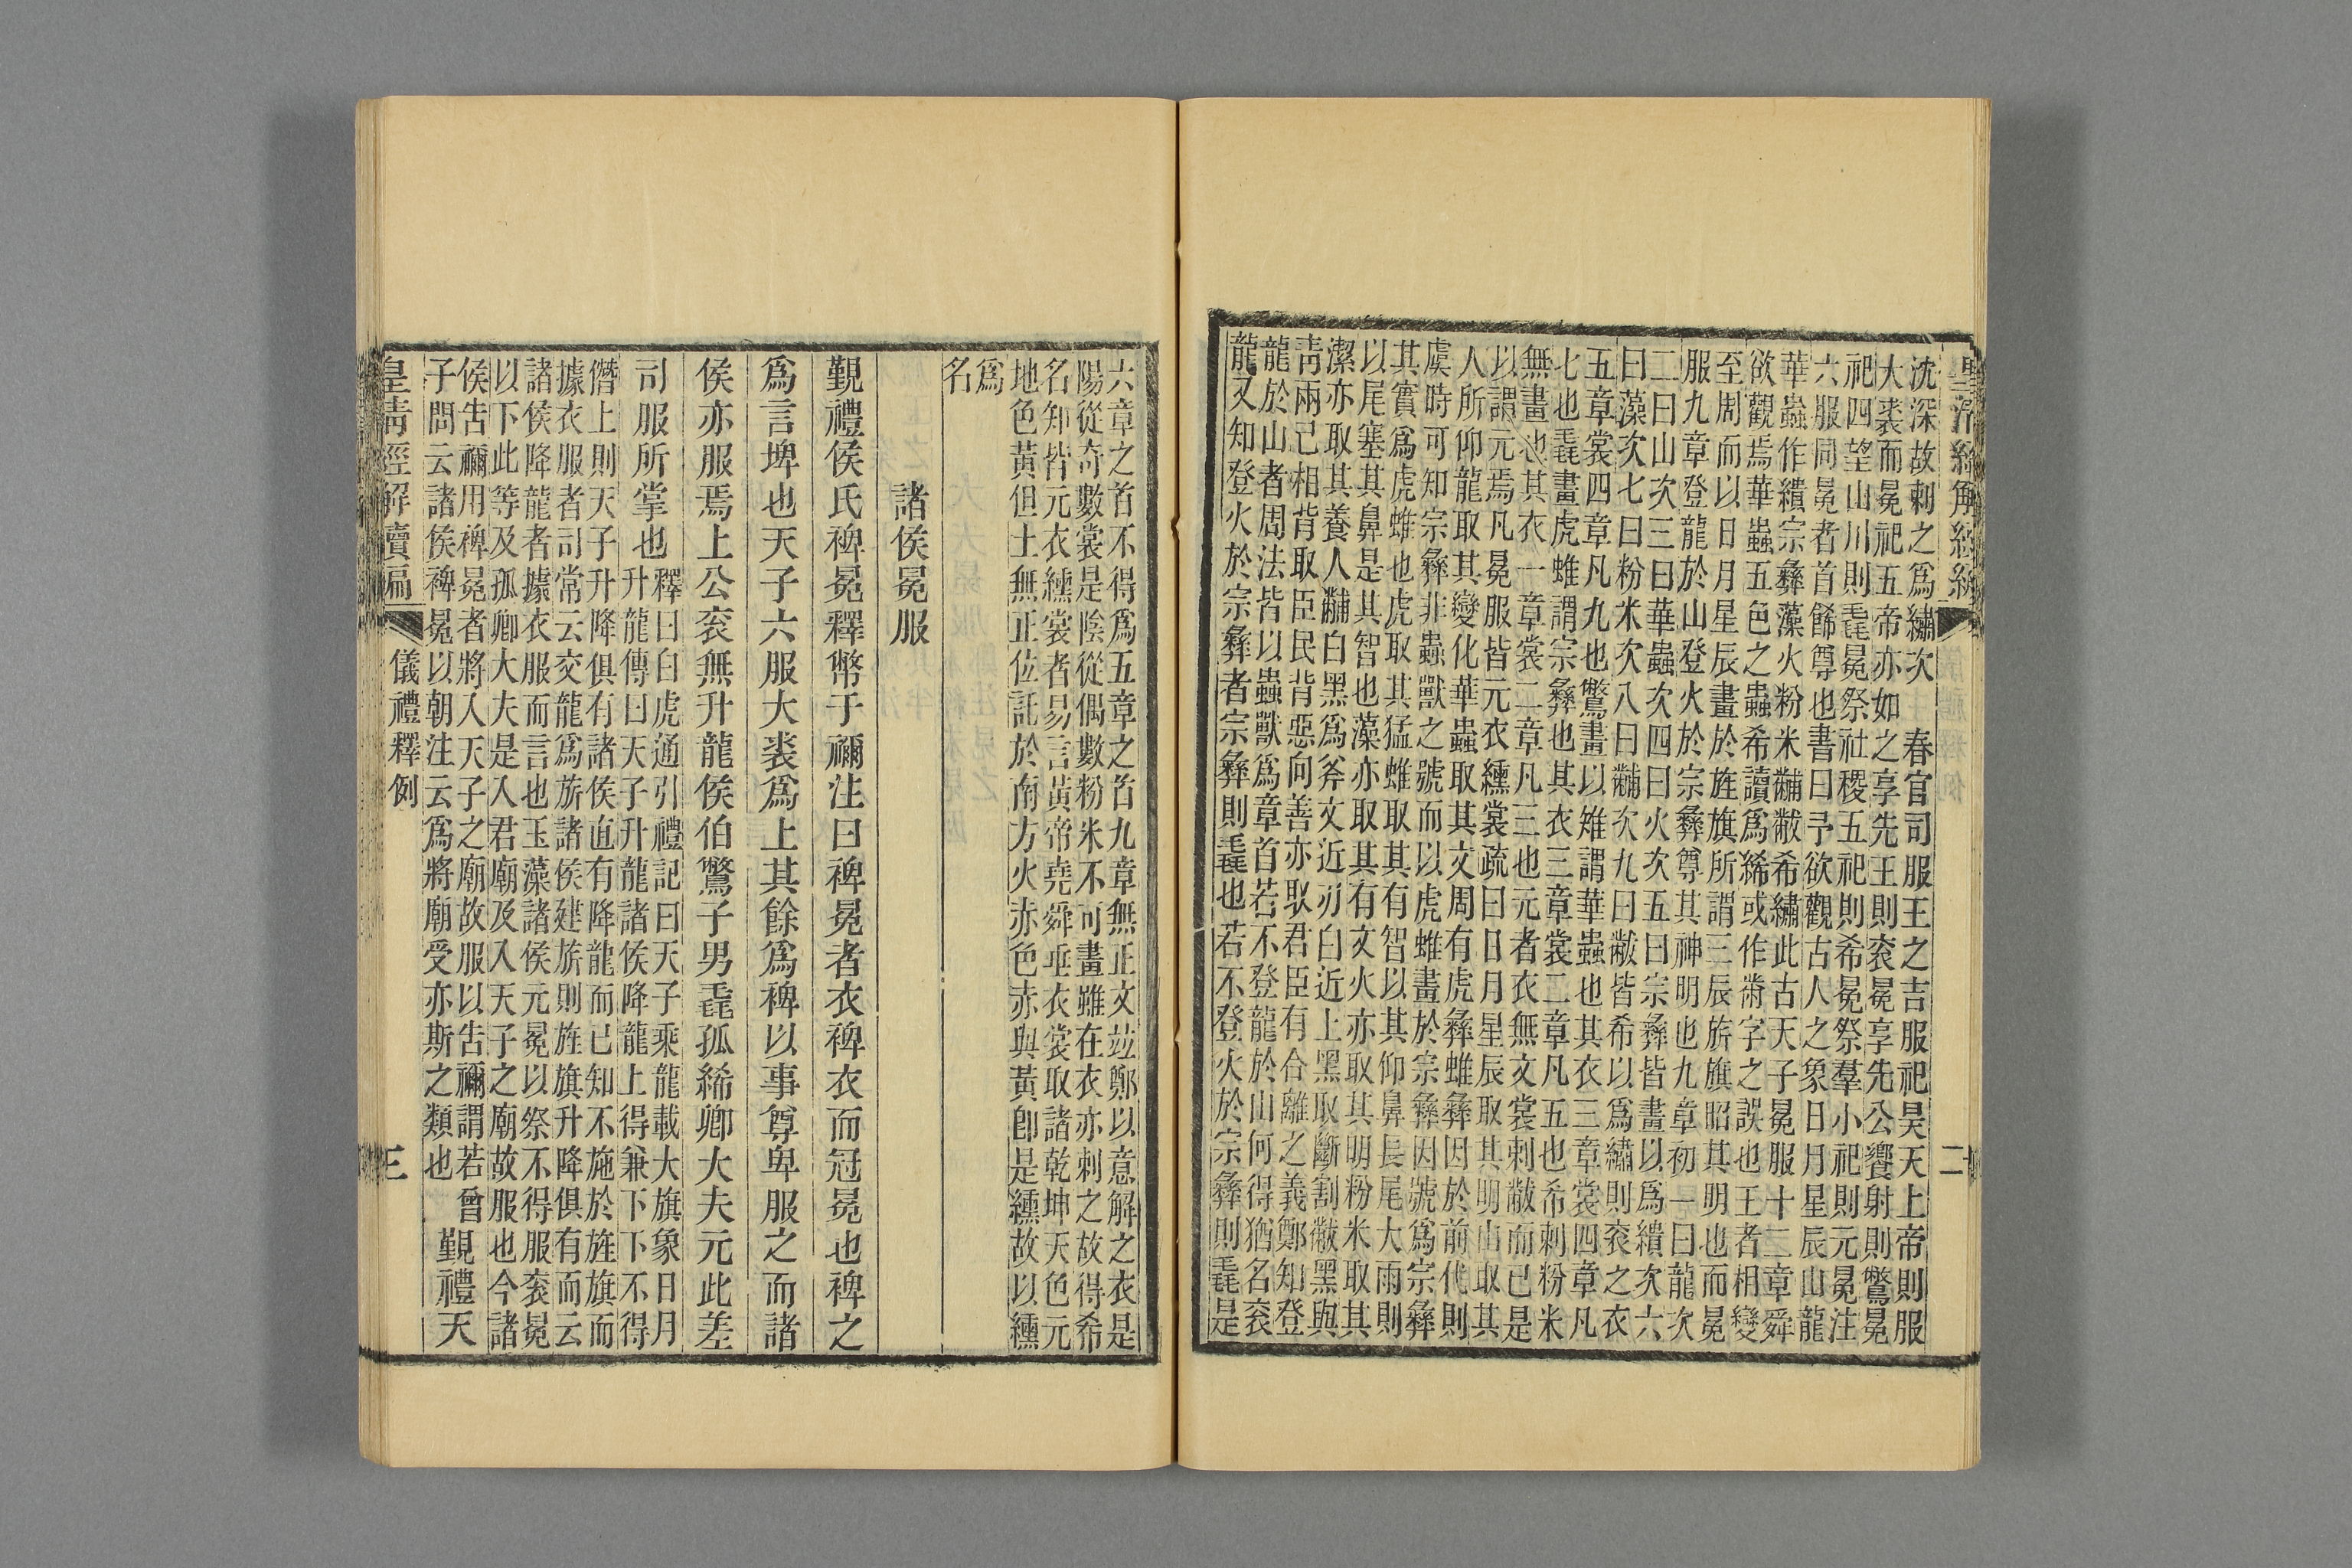 沈深故刺之爲繡次　春官司服王之吉服祀昊天上帝則服
大裘而冕祀五帝亦如之享先王則袞冕享先公饗射則鷩冕
祀四望山川則毳冕祭社稷五祀則希冕祭羣小祀則元冕注
六服同冕者首飾尊也書曰予欲觀古人之象日月星辰山龍
華蟲作繢宗彝藻火粉米黼黻希繡此古天子冕服十二章舜
欲觀焉華蟲五色之蟲希讀爲絺或作黹字之誤也王者相變
至周而以日月星辰畫於旌旗所謂三辰旂旗昭其明也而冕
服九章登龍於山登火於宗彝尊其神明也九章初一曰龍次
二曰山次三曰華蟲次四曰火次五曰宗彝皆畫以爲繢次六
曰藻次七曰粉米次八曰黼次九曰黻皆希以爲繡則袞之衣
五章裳四章凡九也鷩畫以雉謂華蟲也其衣三章裳四章凡
七也毳畫虎蜼謂宗彝也其衣三章裳二章凡五也希刺粉米
無畫也其衣一章裳二章凡三也元者衣無文裳刺黻而已是
以謂元焉凡冕服皆元衣纁裳疏曰日月星辰取其明山取其
人所仰龍取其變化華蟲取其文周有虎彝蜼彝因於前代則
虞時可知宗彝非蟲獸之號而以虎蜼畫於宗彝因號爲宗彝
其實爲虎蜼也虎取其猛蜼取其有智以其仰鼻長尾大雨則
以尾塞其鼻是其智也藻亦取其有文火亦取其明粉米取其
潔亦取其養人黼白黑爲斧文近刃白近上黑取斷割黻黑與
靑兩己相背取臣民背惡向善亦取君臣有合離之義鄭知登
龍於山者周法皆以蟲獸爲章首若不登龍於山何得猶名袞
龍又知登火於宗彝者宗彝則毳也若不登火於宗彝則毳是
六章之首不得爲五章之首九章無正文竝鄭以意解之衣是
陽從奇數裳是陰從偶數粉米不可畫雖在衣亦刺之故得希
名知皆元衣纁裳者易言黃帝堯舜垂衣裳取諸乾坤天色元
地色黃但土無正位託於南方火赤色赤與黃卽是纁故以纁
爲
名
諸侯冕服
覲禮侯氏裨冕釋幣于禰注曰裨冕者衣裨衣而冠冕也裨之
爲言埤也天子六服大裘爲上其餘爲裨以事尊卑服之而諸
侯亦服焉上公袞無升龍侯伯鷩子男毳孤絺卿大夫元此差
司服所掌也
釋曰白虎通引禮記曰天子乘龍載大旗象日月
升龍傳曰天子升龍諸侯降龍上得兼下下不得
僭上則天子升降俱有諸侯直有降龍而已知不施於旌旗而
據衣服者司常云交龍爲旂諸侯建旂則旌旗升降俱有而云
諸侯降龍者據衣服而言也玉藻諸侯元冕以祭不得服袞冕
以下此等及孤卿大夫是入君廟及入天子之廟故服也今諸
侯告禰用裨冕者將入天子之廟故服以告禰謂若曾
子問云諸侯裨冕以朝注云爲將廟受亦斯之類也
覲禮天
皇淸經解續編
儀禮釋例
三
二